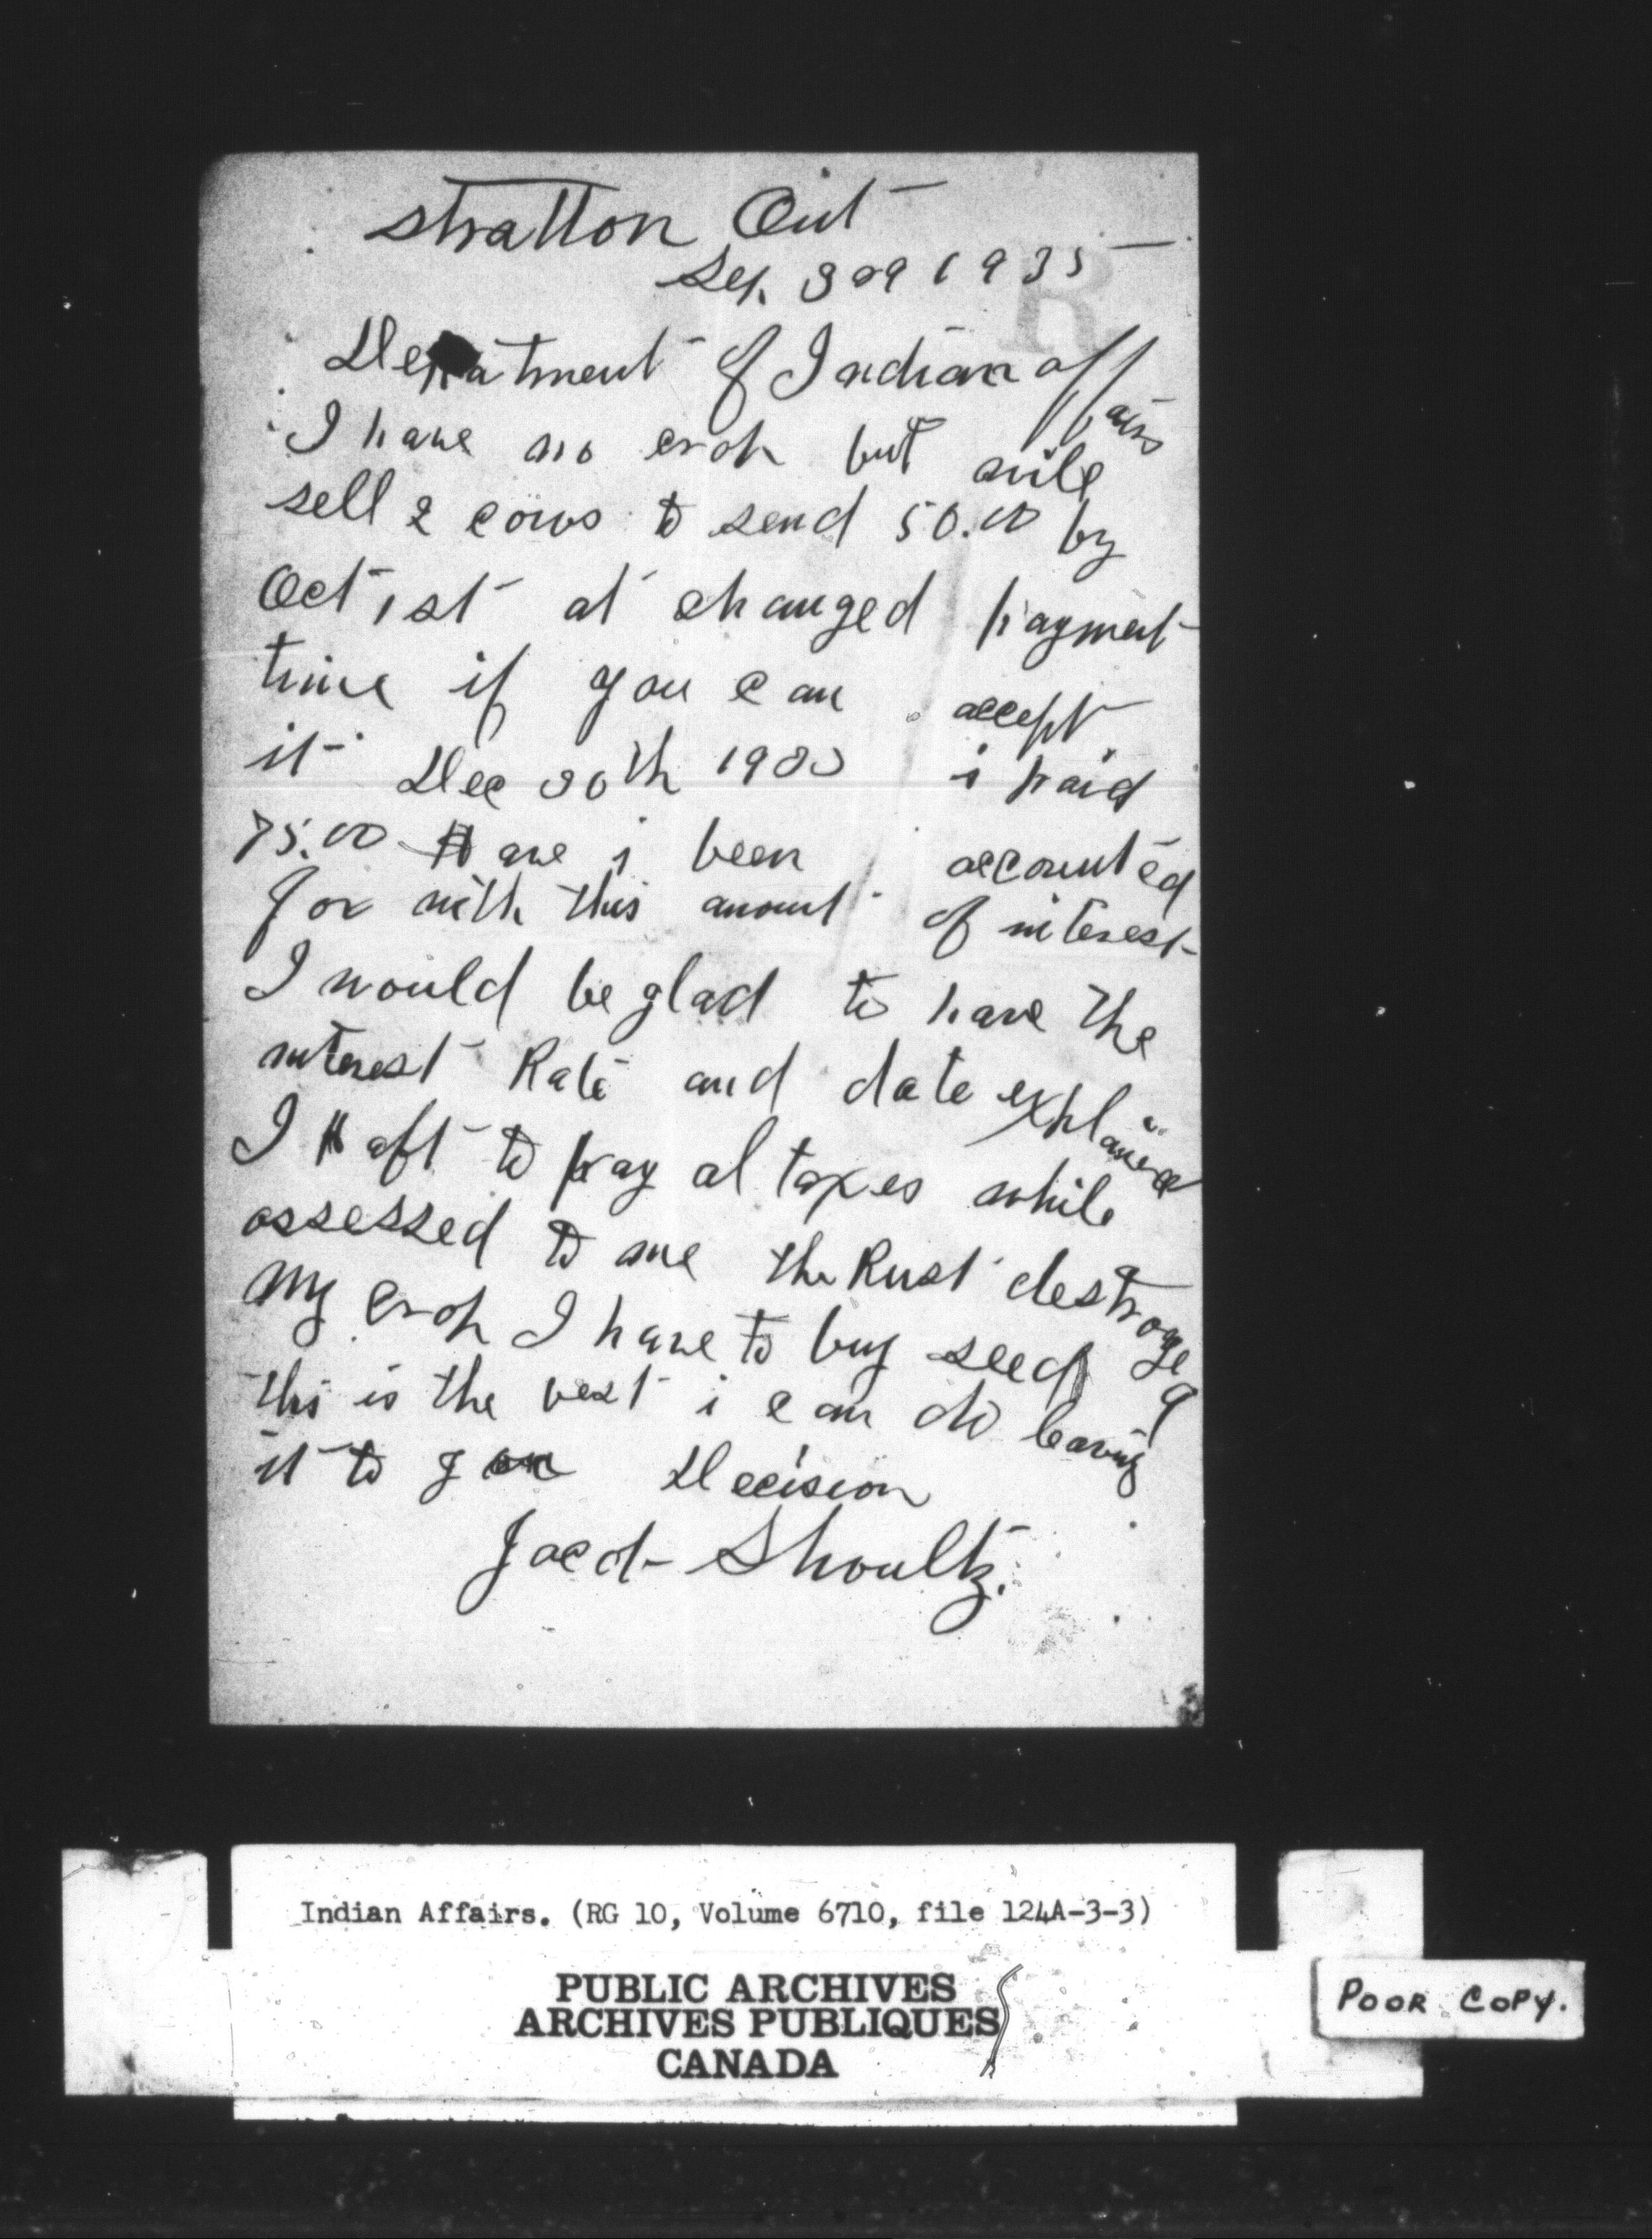 Stratton Ont
Sep. 3rd 1935
Depatment of Indian affairs
I have no crop but wile
sell 2 cows to send 50.00 by
Oct 1st at changed payment
time if you can accept
it Dec 30th 1933 i paid
75.00 Have i been accounted
for with this amount of interest
I would be glad to have the
interest Rate and date explained
I haft to pay al taxes while
assessed to me the Rust destroyed
My crop I have to buy seed
this is the best i can do leaving
it to your Decision
Jacd Shoultz.
R
Indian Affairs. (RG 10, Volume 6710, file 124A-3-3)
PUBLIC ARCHIVES
ARCHIVES PUBLIQUES
CANADA
POOR COPY.